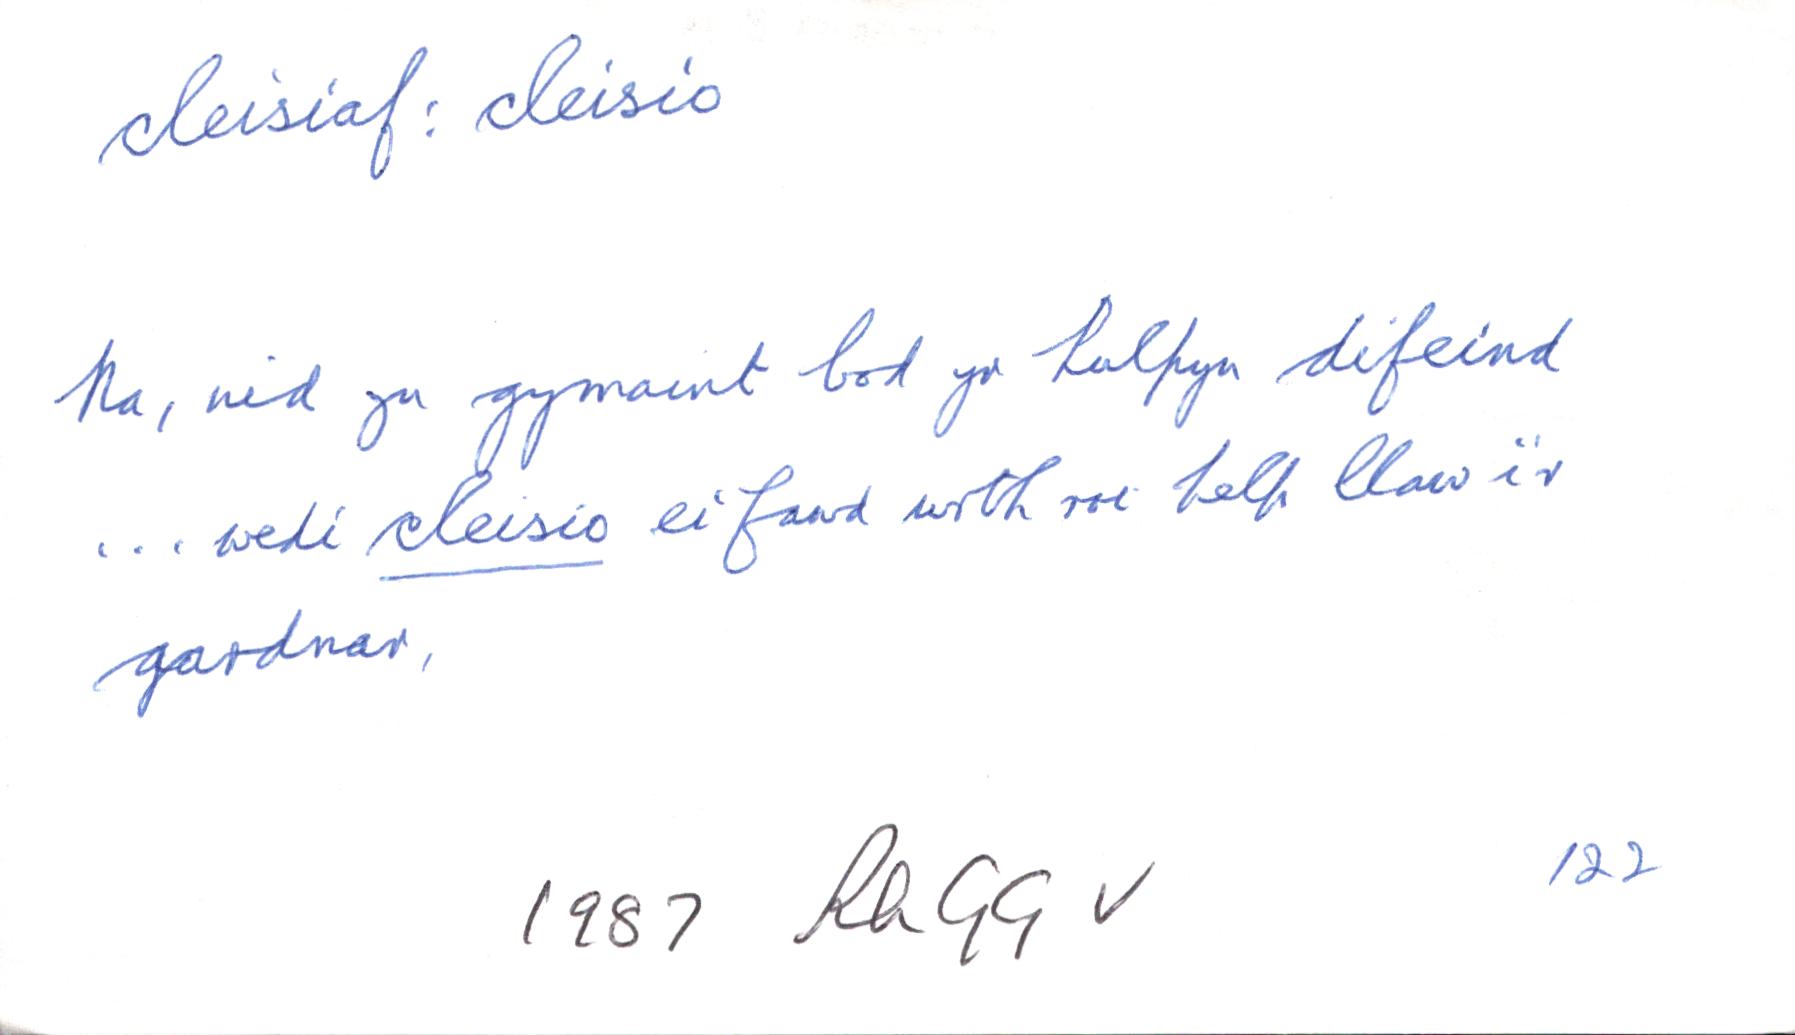 cleisiaf: cleisio
Na, nid yn gymaint bod yr hulpyn difeind
... wedi cleisio ei fawd wrth roi help llaw i'r
gardnar,
1987 RhGG V ✓
122